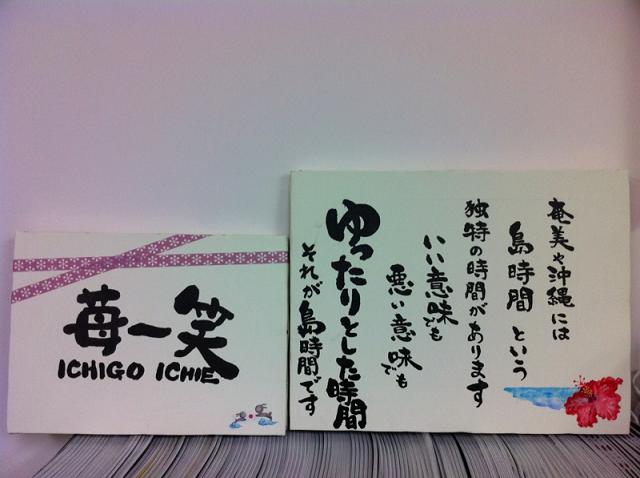 苺一笑
ICHIGO ICHIE
奄美や沖縄には
島時間という
独特の時間があります
いい意味でも
悪い意味でも
ゆったりとした時間
それが島時間です